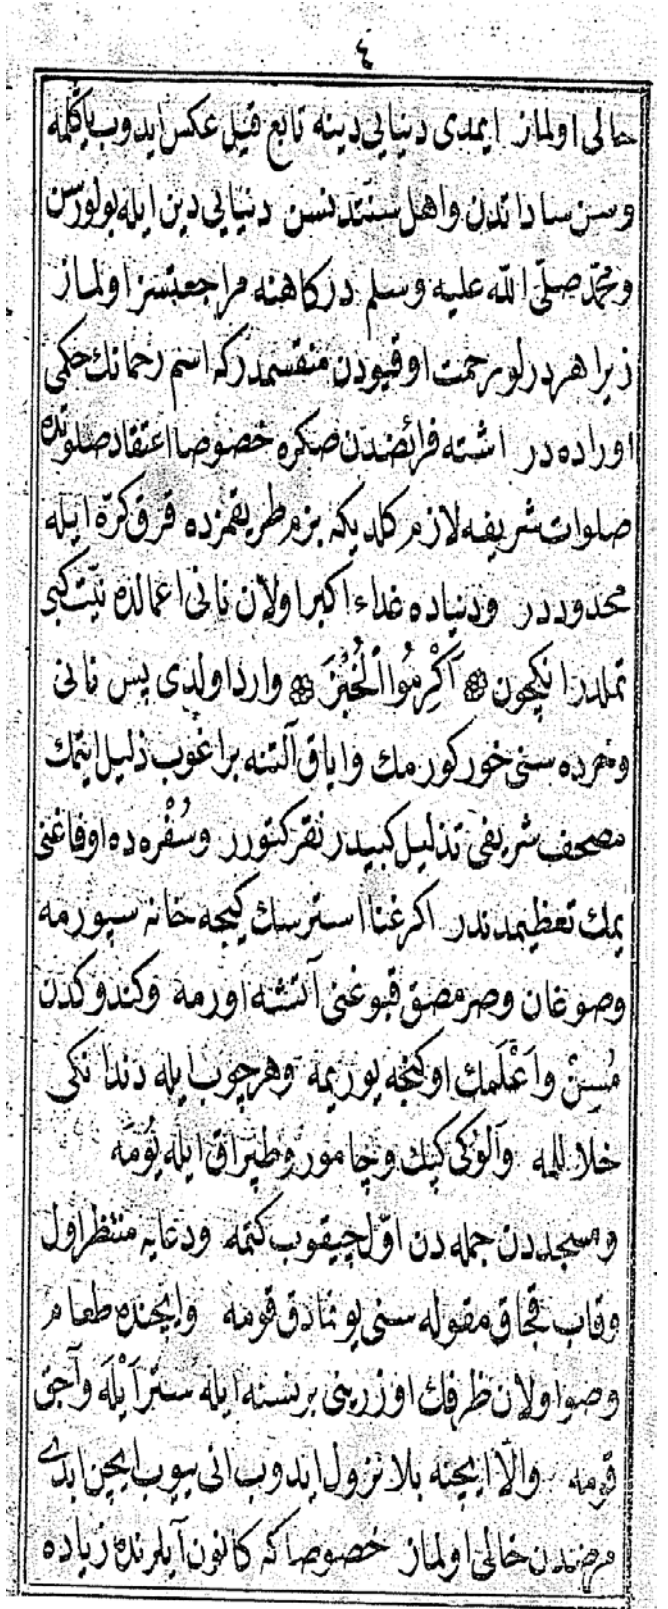 ٤
خالی اولماز ایمدی دنیایی دینه تابع قیل عکس ایدوب یاکلمه
وسن ساداتدن واهل سنتدنسن دنیایی دین ایله بولورسن
ومحمد صلّی اللّه علیه وسلم درکاهنه مراجعتسز اولماز
زیرا هر درلو رحمت اوقپودن منقسمدرکه اسم رحمانك حکمی
اوراده در اشته فرائضدن صکره خصوصا اعتقاد صلوتده
صلوات شریفه لازم کلدیکه بزم طریقمزده قرق کرّه ایله
محدوددر ودنیاده غداء اکبر اولان نانی اعمالده نیّت کبی
تملدر انکچون ۞ اَکْرِمُوا الْخُبْزَ ۞ وارد اولدی پس نانی
وخرده سنی خور کورمك وایاق آلتنه براغوب ذلیل ایتمك
مصحف شریفی تذلیل کبیدر فقر کتورر وسُفْره ده اوفاغنی
یمك تعظیمدندر اکر غنا استرسك کیجه خانه سپورمه
وصوغان وصرمصق قبوغنی آتشه اورمه وکندوکدن
مُسِنّ واَعْلَمك اوکنجه یوریمه وهر چوب ایله دندانکی
خلاللمه واَلوکی کپك وچامور وطپراق ایله یُومَه
ومسجددن جمله دن اوّل چیقوب کتمه ودعایه منتظر اول
وقاب قجاق مقوله سنی یونمادق قومه وایچنده طعام
وصو اولان ظرفك اوزرینی برنسنه ایله ستر اَیْلَه وآجق
قومه والّا ایچنه بلا نزول ایدوب انی ییوب ایچن ابدی
مرضدن خالی اولماز خصوصا که کانون آیلرنده زیاده